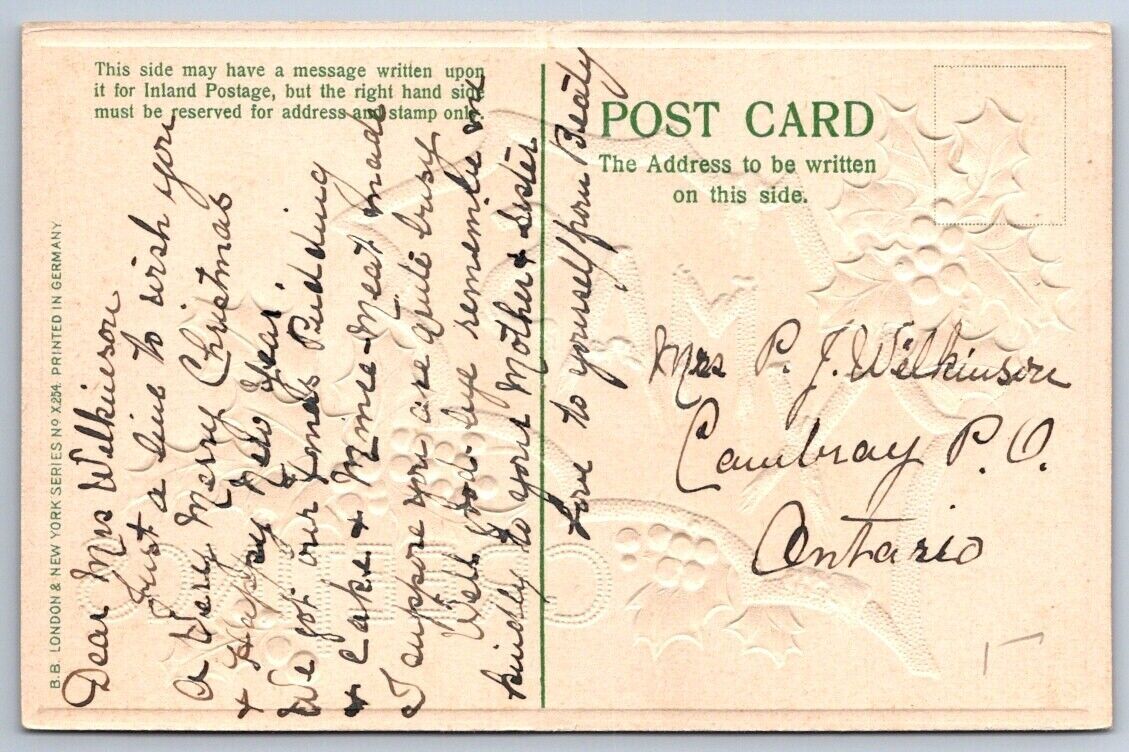 This side may have a message written upon
it for Inland Postage, but the right hand side
must be reserved for address and stamp only.
POST CARD
The Address to be written
on this side.
B.B. LONDON & NEW YORK SERIES No X.254. PRINTED IN GERMANY
Dear Mrs Wilkinson
Just a line to wish you
a Very Merry Christmas
+ Happy New Year
We got our Pudding
+ Cake + Mince-Meat made
I suppose you are quite busy
Well good-bye remember me
kindly to your Mother + Sister
Love to yourself from Beaty
Mrs P. J. Wilkinson
Cambray P.O.
Ontario